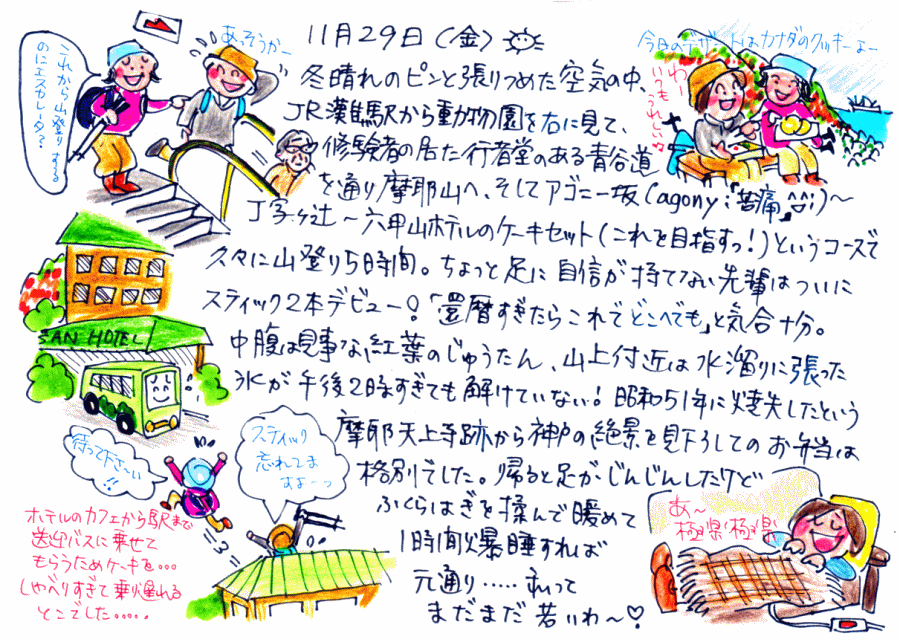 11月29日(金)
冬晴れのピンと張りつめた空気の中、
JR灘駅から動物園を右に見て、
修験者の居た行者堂のある青谷道
を通り摩耶山へ、そしてアゴニー坂(agony:「苦痛」
丁字ヶ辻～六甲山ホテルのケーキセット(これを目指すっ!)というコースで
久々に山登り5時間。ちょっと足に自信が持てない先輩はついに
スティック2本デビュー!「還暦すぎたらこれでどこへでも」と気合十分。
中腹は見事な紅葉のじゅうたん、山上付近は水溜りに張った
氷が午後2時すぎても解けていない!昭和51年に焼失したという
摩耶天上寺跡から神戸の絶景を見下ろしてのお弁当は
格別でした。帰ると足がじんじんしたけど
ふくらはぎを揉んで暖めて
1時間爆睡すれば
元通り……われって
まだまだ若いわ～♡
これから山登りする
のにエスカレータ?
あっそうかー
今日のデザートはカナダのクッキーよー
わー
いつもうれしい
SAN HOTEL
待って下さい!!
スティック
忘れてま
すよーっ
ホテルのカフェから駅まで
送迎バスに乗せて
もらうためケーキを…
しゃべりすぎて乗り遅れる
とこでした……
あ～
極楽極楽